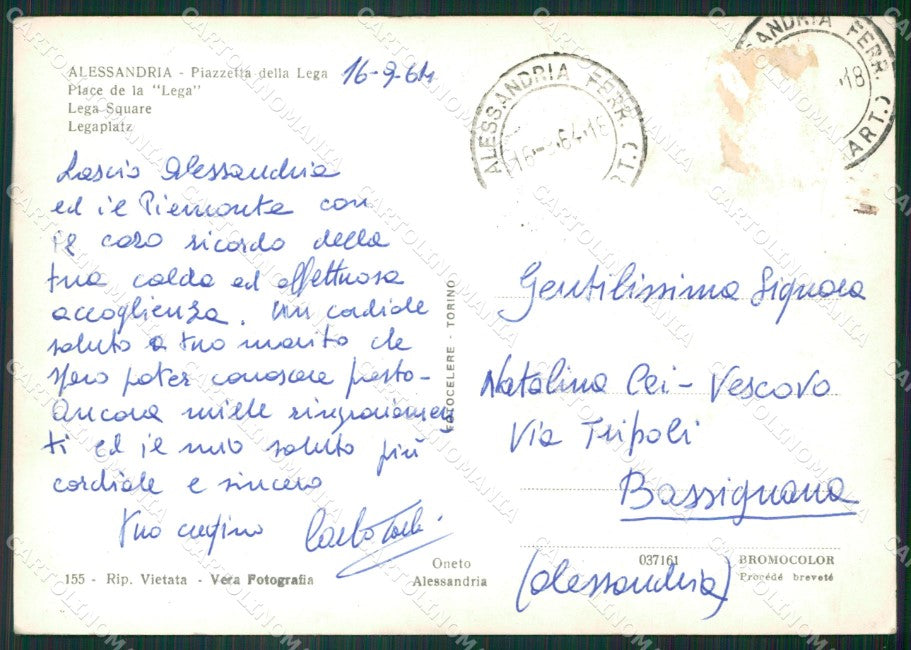 ALESSANDRIA - Piazzetta della Lega
Place de la "Lega"
Lega Square
Legaplatz
16-9-64
Lascio Alessandria
ed il Piemonte con
il caro ricordo della
tua calda ed affettuosa
accoglienza. Un cordiale
saluto a tuo marito che
spero poter conoscere presto-
Ancora mille ringraziamen
ti ed il mio saluto più
cordiale e sincero
tuo cugino Carlo
155 - Rip. Vietata - Vera Fotografia
Oneto
Alessandria
FOTOCELERE - TORINO
ALESSANDRIA FERR.
64-18
ANDRIA FERR.
-18
ART.)
Gentilissima Signora
Natalina Cei - Vescovo
Via Tripoli
Bassignana
(Alessandria)
037161
BROMOCOLOR
Procédé breveté
CARTOLINOMANIA